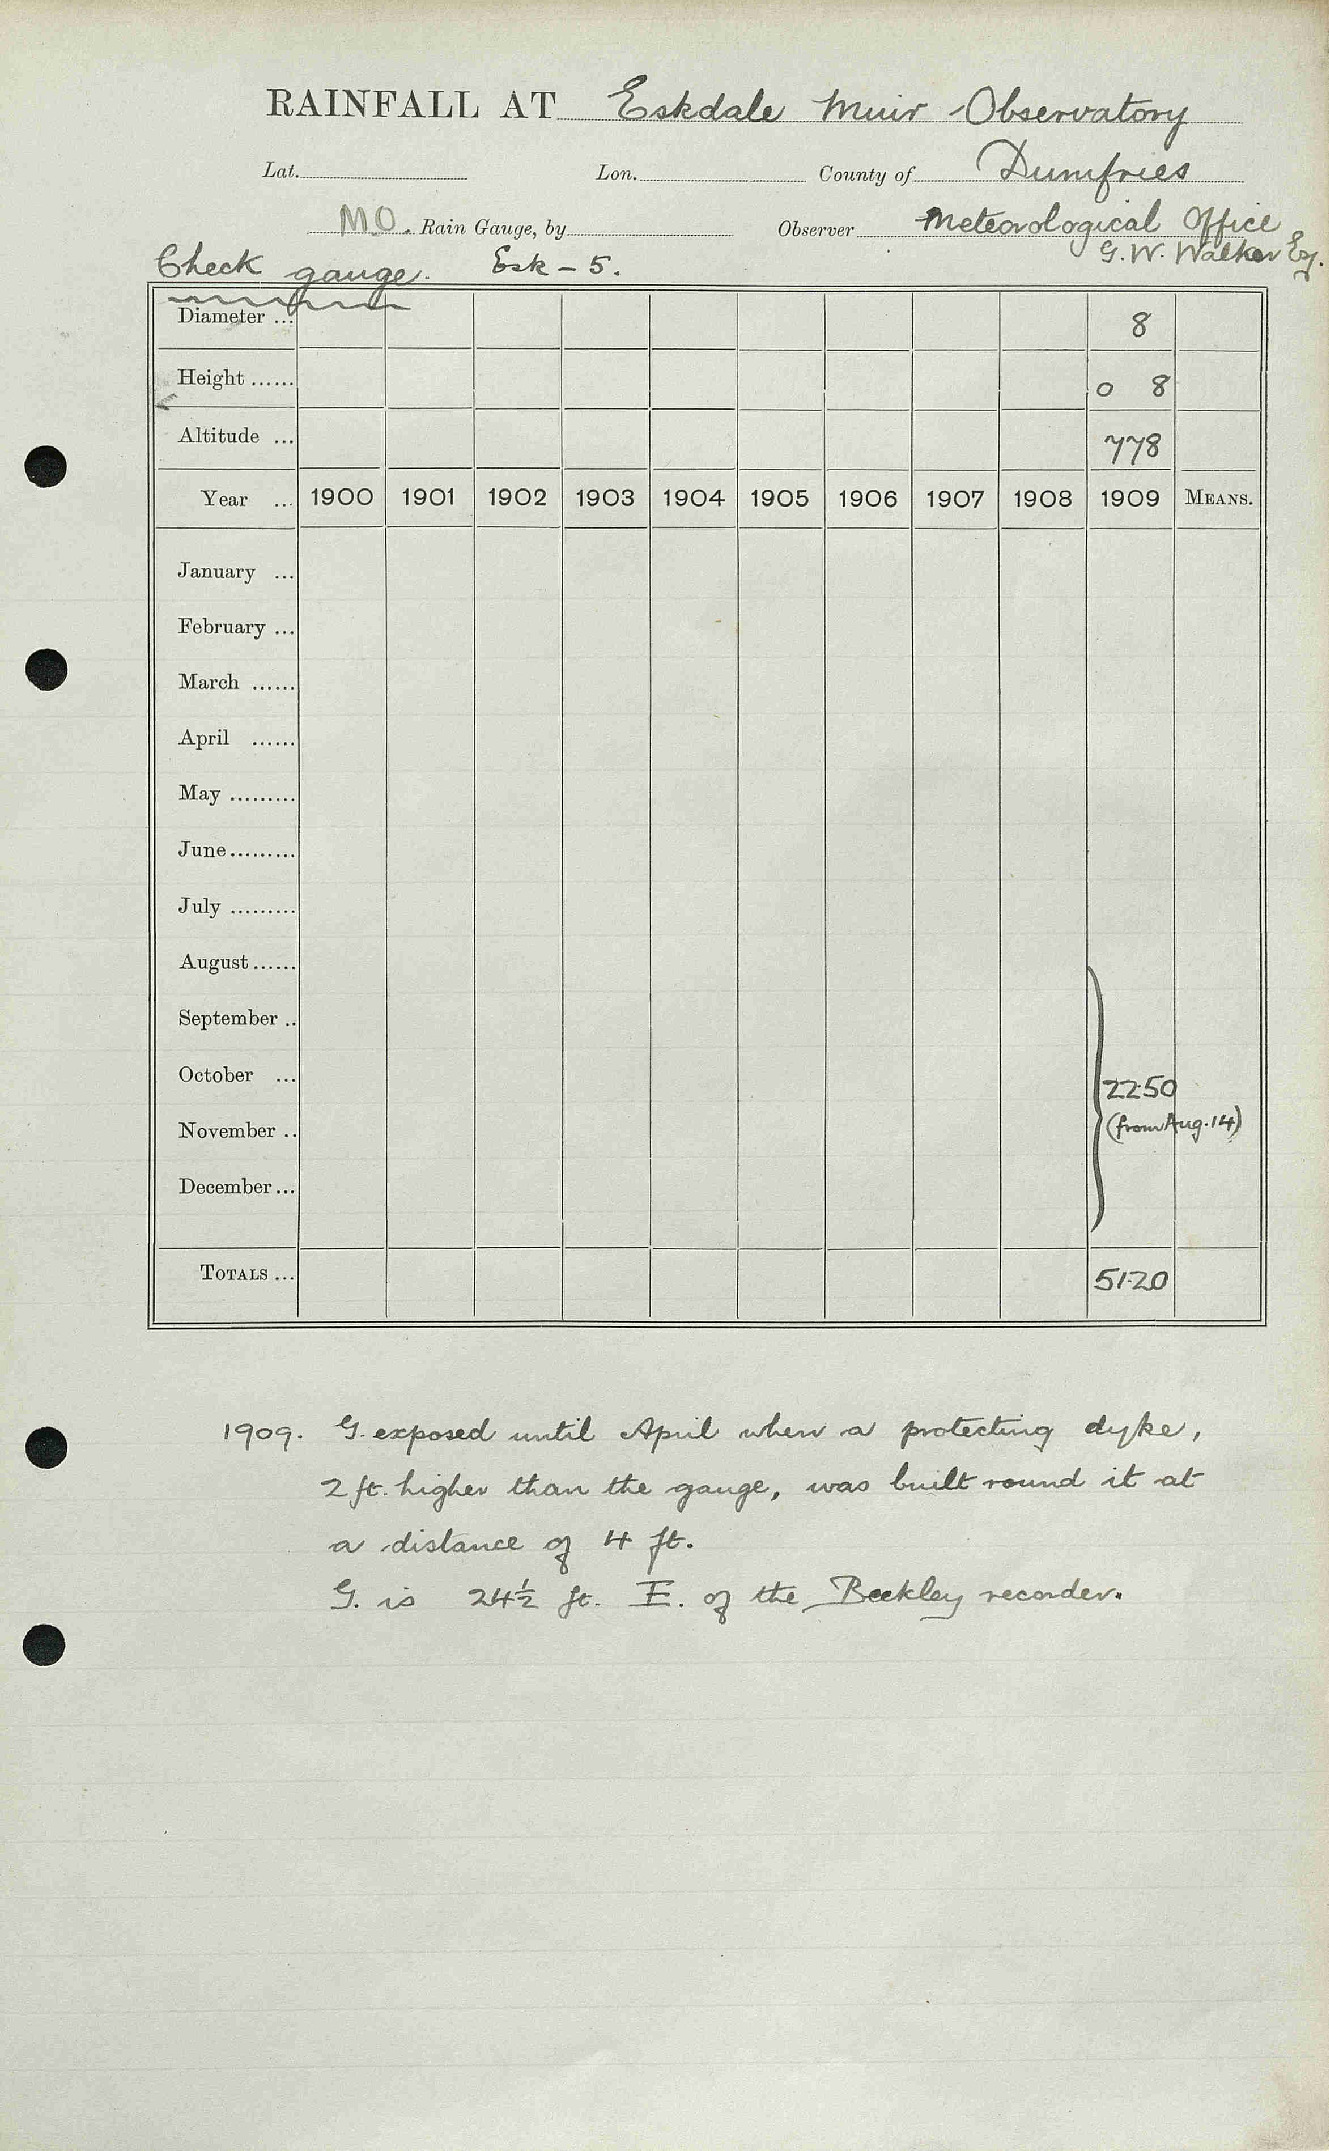 RAINFALL AT Eskdale Muir Observatory
Lat. Lon. County of Dumfries
M.O. Rain Gauge, by Observer Meteorological Office
G. W. Walker Esq.
Check gauge. Esk - 5.
Diameter ... 8
Height ...... 0 8
Altitude ... 778
Year ... 1900 1901 1902 1903 1904 1905 1906 1907 1908 1909 MEANS.
January ...
February ...
March ......
April ......
May .........
June .........
July .........
August ......
September ..
October ... 22.50
(from Aug. 14)
November ..
December ...
TOTALS ... 51.20
1909. G. exposed until April when a protecting dyke,
2 ft. higher than the gauge, was built round it at
a distance of 4 ft.
G. is 24½ ft. E. of the Beckley recorder.